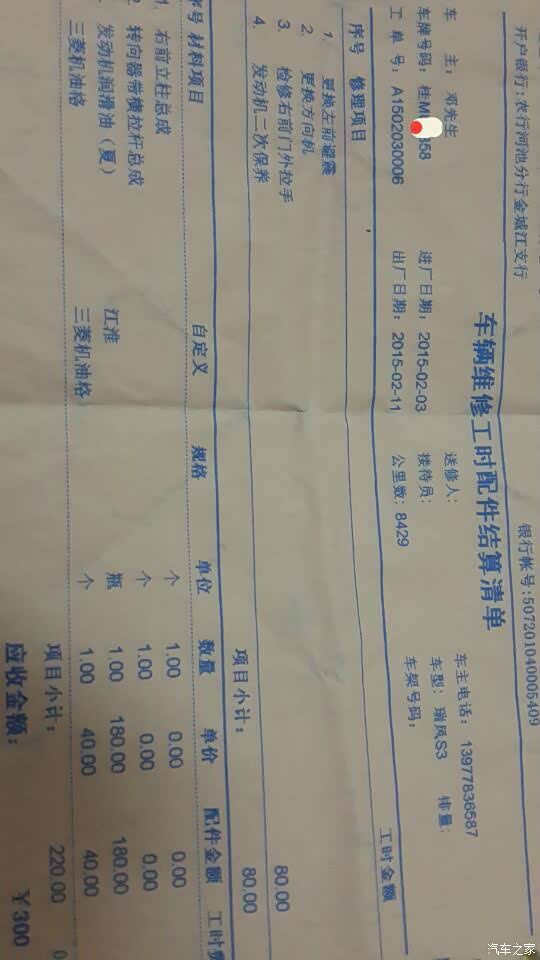 开户银行:农行河池分行金城江支行 银行帐号:507201040005409
车辆维修工时配件结算清单
车 主: 邓先生 送修人: 车主电话: 13977836587
车牌号码: 桂M 358 进厂日期: 2015-02-03 接待员: 车型: 瑞风S3 排量:
工 单 号: A1502030006 出厂日期: 2015-02-11 公里数: 8429 车架号码:
序号 修理项目 工时金额
1. 更换左前避震
2. 更换方向机
3. 检修右前门外拉手
4. 发动机二次保养 80.00
项目小计: 80.00
序号 材料项目 自定义 规格 单位 数量 单价 配件金额 工时费
1. 右前立柱总成 个 1.00 0.00 0.00
2. 转向器带横拉杆总成 个 1.00 0.00 0.00
发动机润滑油(夏) 江淮 瓶 1.00 180.00 180.00
三菱机油格 三菱机油格 个 1.00 40.00 40.00
项目小计: 220.00 0
应收金额: ¥300
汽车之家